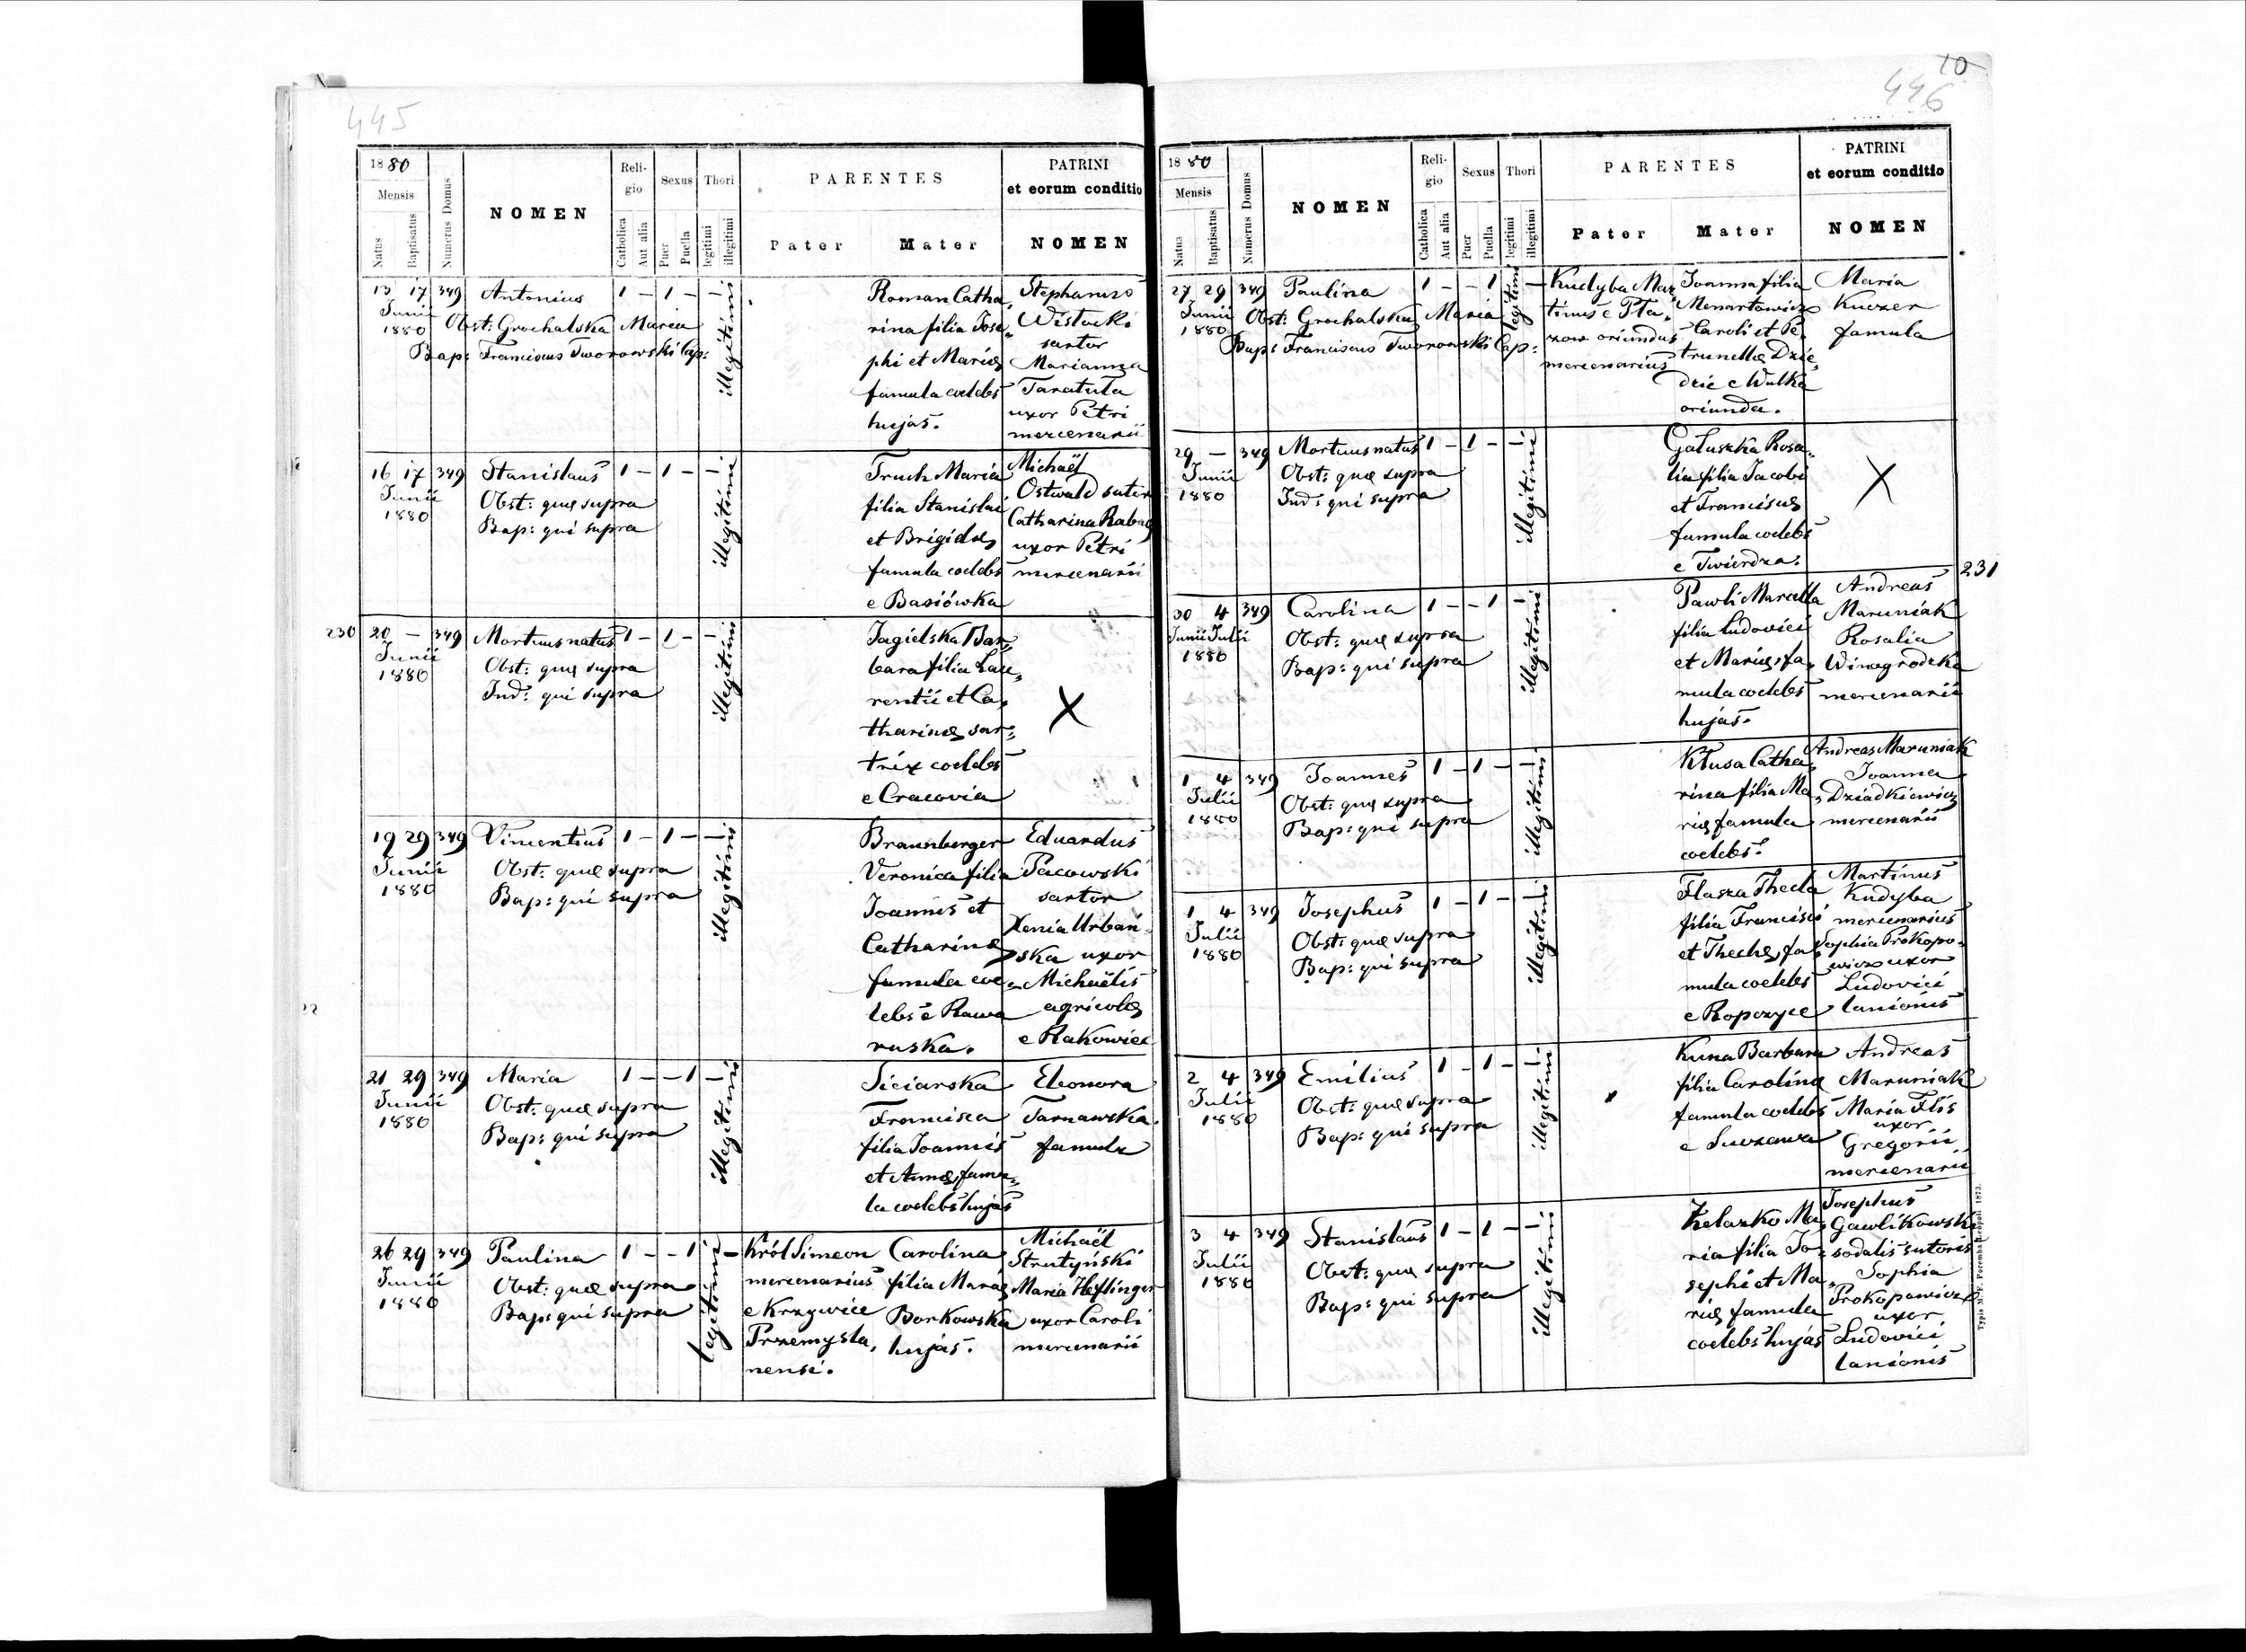 445
1880
Mensis
Natus
Baptisatus
Numerus Domus
NOMEN
Religio
Catholica
Aut alia
Sexus
Puer
Puella
Thori
legitimi
illegitimi
PARENTES
Pater
Mater
PATRINI
et eorum conditio
NOMEN
13 17 349 Antonius 1 – 1 – – illegitimi
Junii
1880
Obst: Grochalska Maria
Bap: Franciscus Tworowski Cap:
Roman Catha„
rina filia Jose„
phi et Mariæ
famula coelebs
hujas.
Stephanus
Wisłocki
sartor
Marianna
Taratuła
uxor Petri
mercenarii
16 17 349 Stanislaus 1 – 1 – – illegitimi
Junii
1880
Obst: quæ supra
Bap: qui supra
Truch Maria
filia Stanislai
et Brigidæ
famula coelebs
e Basiówka
Michaël
Ostwald sutor
Catharina Rabag
uxor Petri
mercenarii
230
20 – 349 Mortuus natus 1 – 1 – – illegitimi
Junii
1880
Obst: quæ supra
Ind: qui supra
Jagielska Bar„
bara filia Lau„
rentii et Ca„
tharinæ sar„
trix coelebs
e Cracovia
X
19 29 349 Vincentius 1 – 1 – – illegitimi
Junii
1880
Obst: quæ supra
Bap: qui supra
Braunberger
Veronica filia
Joannis et
Catharinæ
famula coe„
lebs e Rawa
ruska.
Eduardus
Pacowski
sartor
Xenia Urbań„
ska uxor
Michaëlis
agricolæ
e Rakowiec
21 29 349 Maria 1 – – 1 – illegitimi
Junii
1880
Obst: quæ supra
Bap: qui supra
Siciarska
Francisca
filia Joannis
et Annæ, famu„
la coelebs hujas
Eleonora
Tarnawska
famula
26 29 349 Paulina 1 – – 1 legitimi –
Junii
1880
Obst: quæ supra
Bap: qui supra
Król Simeon
mercenarius
e Krzywice
Przemysla„
nensi.
Carolina
filia Mariæ
Borkowska
hujas.
Michaël
Strutyński
Maria Heflinger
uxor Caroli
mercenarii
10
446
1880
Mensis
Natus
Baptisatus
Numerus Domus
NOMEN
Religio
Catholica
Aut alia
Sexus
Puer
Puella
Thori
legitimi
illegitimi
PARENTES
Pater
Mater
PATRINI
et eorum conditio
NOMEN
27 29 349 Paulina 1 – – 1 legitimi –
Junii
1880
Obst: Grochalska Maria
Bap: Franciscus Tworowski Cap:
Kudyba Mar„
tinus e Pła„
zow oriundus
mercenarius
Joanna filia
Menartowicz
Caroli et Pe„
trunellæ Dzie„
dzic e Wulka
oriunda.
Maria
Kuczer
famula
29 – 349 Mortuus natus 1 – 1 – – illegitimi
Junii
1880
Obst: quæ supra
Ind: qui supra
Gałuszka Rosa„
lia filia Jacobi
et Franciscæ
famula coelebs
e Twierdza.
X
231
30 4 349 Carolina 1 – – 1 – illegitimi
Junii Julii
1880
Obst: quæ supra
Bap: qui supra
Pawli Marcella
filia Ludovici
et Mariæ, fa„
mula coelebs
hujas.
Andreas
Maruniak
Rosalia
Winogrodzka
mercenarii
1 4 349 Joannes 1 – 1 – – illegitimi
Julii
1880
Obst: quæ supra
Bap: qui supra
Kłusa Catha„
rina filia Ma„
riæ famula
coelebs.
Andreas Maruniak
Joanna
Dziadkiewicz
mercenarii
1 4 349 Josephus 1 – 1 – – illegitimi
Julii
1880
Obst: quæ supra
Bap: qui supra
Flasza Thecla
filia Francisci
et Theclæ, fa„
mula coelebs
e Ropczyce
Martinus
Kudyba
mercenarius
Sophia Prokopo„
wicz uxor
Ludovici
lanionis
2 4 349 Emilius 1 – 1 – – illegitimi
Julii
1880
Obst: quæ supra
Bap: qui supra
Kuna Barbara
filia Carolinæ
famula coelebs
e Suczawa
Andreas
Maruniak
Maria Flis
uxor
Gregorii
mercenarii
3 4 349 Stanislaus 1 – 1 – – illegitimi
Julii
1880
Obst: quæ supra
Bap: qui supra
Żelazko Ma„
ria filia Jo„
sephi et Ma„
riæ famula
coelebs hujas
Josephus
Gawlikowski
sodalis sutoris
Sophia
Prokopowicz
uxor
Ludovici
lanionis
Typis M. F. Poremba Leopoli 1873.